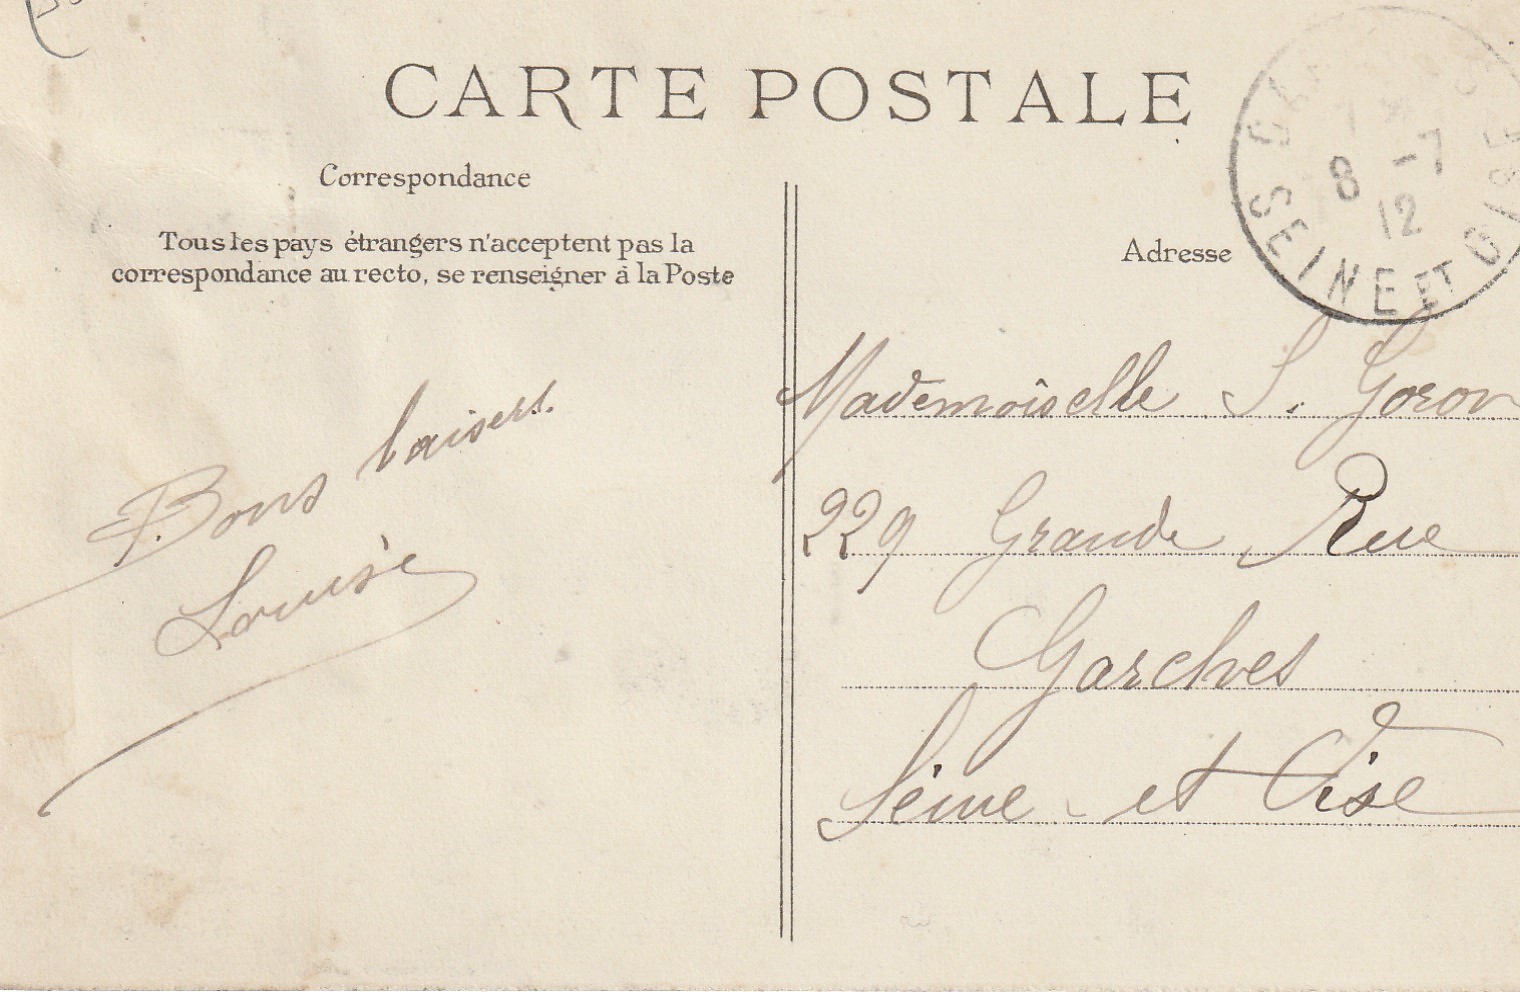 CARTE POSTALE
Correspondance
Tous les pays étrangers n'acceptent pas la
correspondance au recto, se renseigner à la Poste
Bons baisers
Louise
Adresse
8 -7
12
SEINE ET OISE
Mademoiselle S. Goron
229 Grande Rue
Garches
Seine et Oise